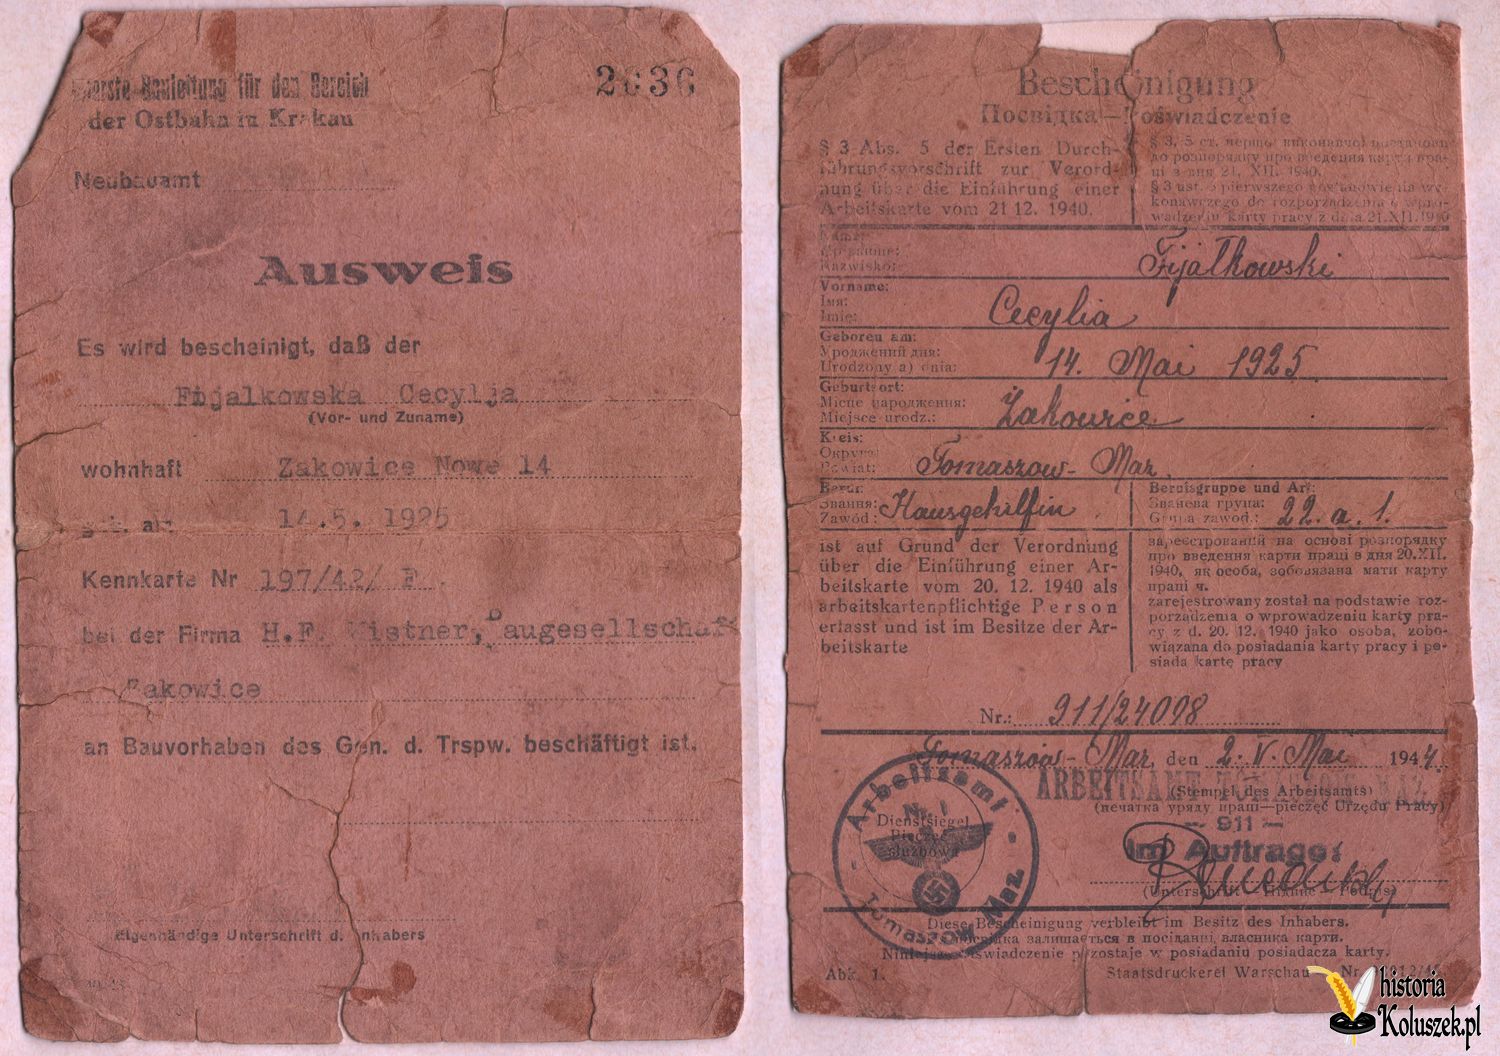 Oberste Bauleitung für den Bereich
der Ostbahn in Krakau
2636
Neubauamt
Ausweis
Es wird bescheinigt, daß der
Fijalkowska Cecylja
(Vor- und Zuname)
wohnhaft Zakowice Nowe 14
geb. am 14.5. 1925
Kennkarte Nr 197/42/ F
bei der Firma H.F. Wistner, Baugesellschaft
Zakowice
an Bauvorhaben des Gen. d. Trspw. beschäftigt ist.
Eigenhändige Unterschrift d. Inhabers
Bescheinigung
Посвідка—Poświadczenie
§ 3 Abs. 5 der Ersten Durch-
führungsvorschrift zur Verord-
nung über die Einführung einer
Arbeitskarte vom 21 12. 1940.
§ 3, 5 ст. першої виконавчої постанови
до розпорядку про введення карти пра-
ці з дня 21. XII. 1940.
§ 3 ust. 5 pierwszego postanowienia wy-
konawczego do rozporządzenia o wpro-
wadzeniu karty pracy z dnia 21.XII.1940
Name:
Прізвище:
Nazwisko: Fijałkowski
Vorname:
Імя:
Imię: Cecylia
Geboren am:
Уроджений дня:
Urodzony(a) dnia: 14. Mai 1925
Geburtsort:
Місце народження:
Miejsce urodz.: Żakowice
Kreis:
Округа:
Powiat: Tomaszow-Maz.
Beruf:
Звання:
Zawód: Hausgehilfin
Berufsgruppe und Art:
Званева група:
Grupa zawod.: 22. a. 1.
ist auf Grund der Verordnung
über die Einführung einer Ar-
beitskarte vom 20. 12. 1940 als
arbeitskartenpflichtige Person
erfasst und ist im Besitze der Ar-
beitskarte
зареєстрований на основі розпорядку
про введення карти праці з дня 20.XII.
1940, як особа, зобовязана мати карту
праці ч.
zarejestrowany został na podstawie roz-
porządzenia o wprowadzeniu karty pra-
cy z d. 20. 12. 1940 jako osoba, zobo-
wiązana do posiadania karty pracy i po-
siada kartę pracy
Nr.: 911/24098
Tomaszów-Maz, den 2. V. Mai 1944.
ARBEITSAMT TOMASZOW MAZ.
(Stempel des Arbeitsamts)
(печатка уряду праці—pieczęć Urzędu Pracy)
— 911 —
Im Auftrage:
(Unterschrift — Підпис — Podpis)
Arbeitsamt
Nr. 1
Dienstsiegel
Pieczęć
służbowa
Tomaszow Maz.
Diese Bescheinigung verbleibt im Besitz des Inhabers.
Посвідка залишається в посіданні власника карти.
Niniejsze poświadczenie pozostaje w posiadaniu posiadacza karty.
Abk. 1.
Staatsdruckerei Warschau — Nr.
historia
Koluszek.pl